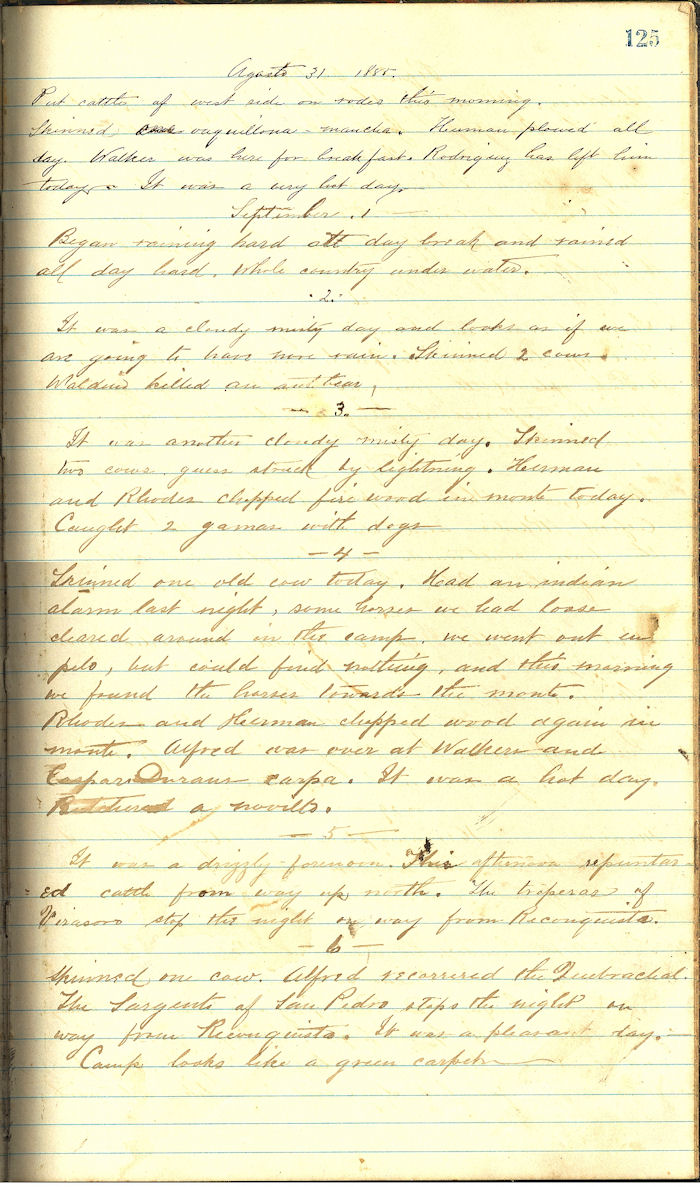 125
Agosto 31 1885.
Put cattle of west side on rodeo this morning.
Skinned one vaquillona - mancha. Herman plowed all
day. Walker was here for breakfast. Rodriguez has left him
today. It was a very hot day.
September 1
Began raining hard att day break and rained
all day hard. Whole country under water.
2.
It was a cloudy misty day and looks as if we
are going to have more rain. Skinned 2 cows.
killed an ant bear,
3.
It was another cloudy misty day. Skinned
two cows, guess struck by lightning. Herman
and Rhodes chopped fire wood in monte today.
Caught 2 gamas with dogs
4
Skinned one old cow today. Had an indian
alarm last night, some horses we had loose
cleared around in the camp, we went out en
pelo, but could find nothing, and this morning
we found the horses towards the monte.
Rhodes and Herman chopped wood again in
monte. Alfred was over at Walkers and
Gaspar Durans carpa. It was a hot day.
Butchered a novillo.
5
It was a drizzly forenoon. This afternoon repuntar-
ed cattle from way up north. The troperas of
Virasoro stop the night on way from Reconquista.
6
Skinned one cow. Alfred recorrered the Quebrachal.
The Sargento of San Pedro stops the night on
way from Reconquista. It was a pleasant day.
Camp looks like a green carpet